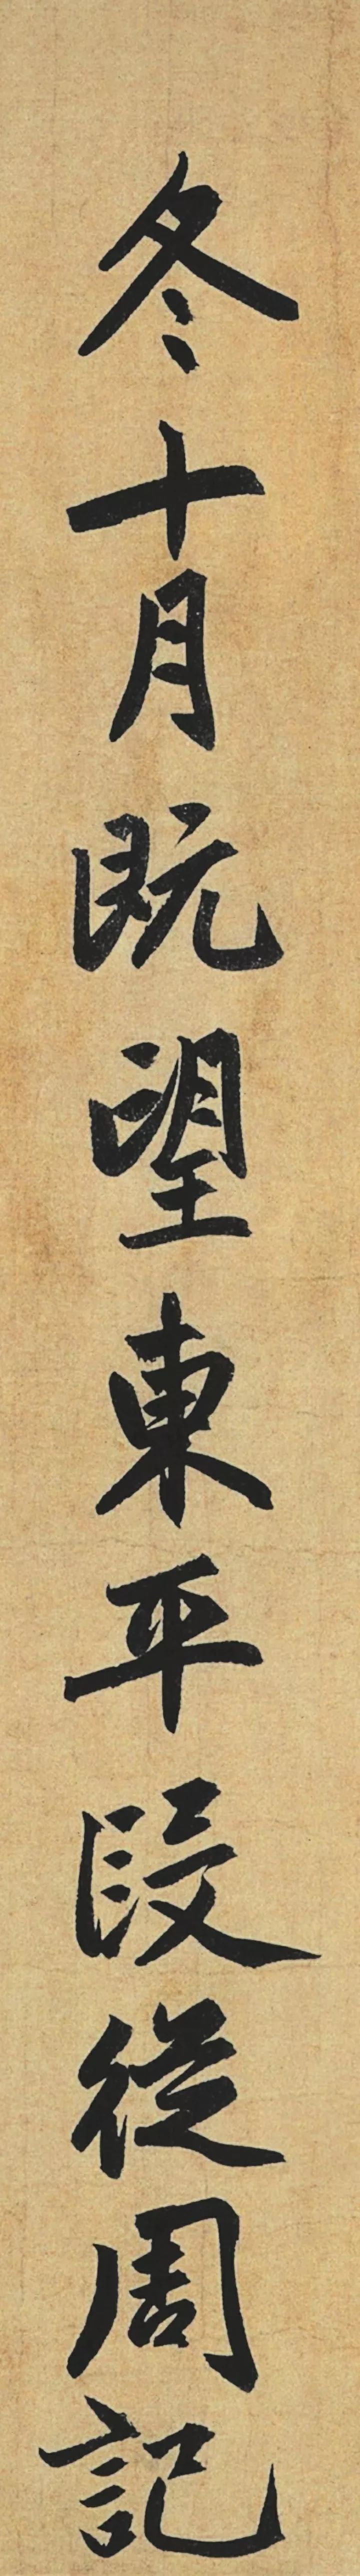 冬十月既望東平段從周記